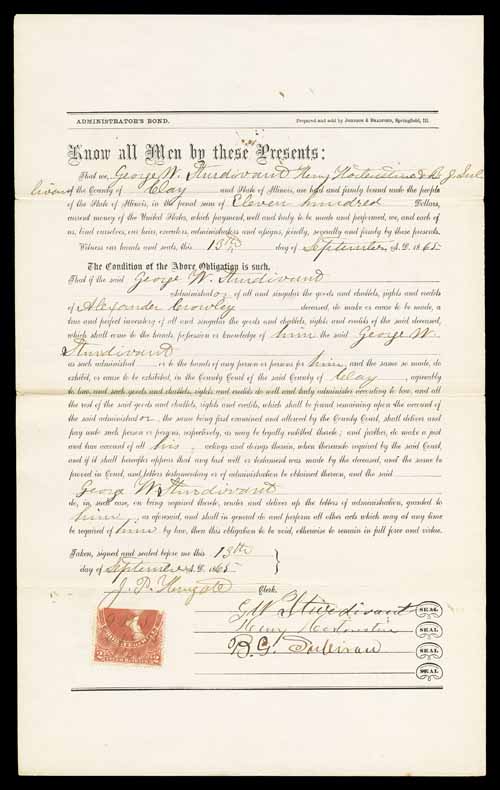 ADMINISTRATOR'S BOND. Prepared and sold by JOHNSON & BRADFORD, Springfield, Ill.
Know all Men by these Presents:
That we, George W. Sturdivant Henry & B. G. Sul
livan of the County of Clay and State of Illinois, are held and firmly bound unto the people
of the State of Illinois, in the penal sum of Eleven hundred Dollars,
current money of the United States, which payment, well and truly to be made and performed, we, and each of
us, bind ourselves, our heirs, executors, administrators and assigns, jointly, severally and firmly by these presents.
Witness our hands and seals, this 13th day of September A. D. 1865
The Condition of the Above Obligation is such,
That if the said George W. Sturdivant
administrator of all and singular the goods and chattels, rights and credits
of Alexander Crowley deceased, do make or cause to be made, a
true and perfect inventory of all and singular the goods and chattels, rights and credits of the said deceased,
which shall come to the hands, possession or knowledge of him the said George W.
Sturdivant
as such administrator or to the hands of any person or persons for him, and the same so made, do
exhibit, or cause to be exhibited, in the County Court of the said County of Clay, agreeably
to law, and such goods and chattels, rights and credits do well and truly administer according to law, and all
the rest of the said goods and chattels, rights and credits, which shall be found remaining upon the account of
the said administrator, the same being first examined and allowed by the County Court, shall deliver and
pay unto such person or persons, respectively, as may be legally entitled thereto; and further, do make a just
and true account of all his actings and doings therein, when thereunto required by the said Court,
and if it shall hereafter appear that any last will or testament was made by the deceased, and the same be
proved in Court, and letters testamentary or of administration be obtained thereon, and the said
George W. Sturdivant
do, in such case, on being required thereto, render and deliver up the letters of administration, granted to
him as aforesaid, and shall in general do and perform all other acts which may at any time
be required of him by law, then this obligation to be void, otherwise to remain in full force and virtue.
Taken, signed and sealed before me this 13th
day of September A. D. 1865
J. P. Clerk.
G W Sturdivant SEAL
Henry SEAL
B. G. Sullivan SEAL
SEAL